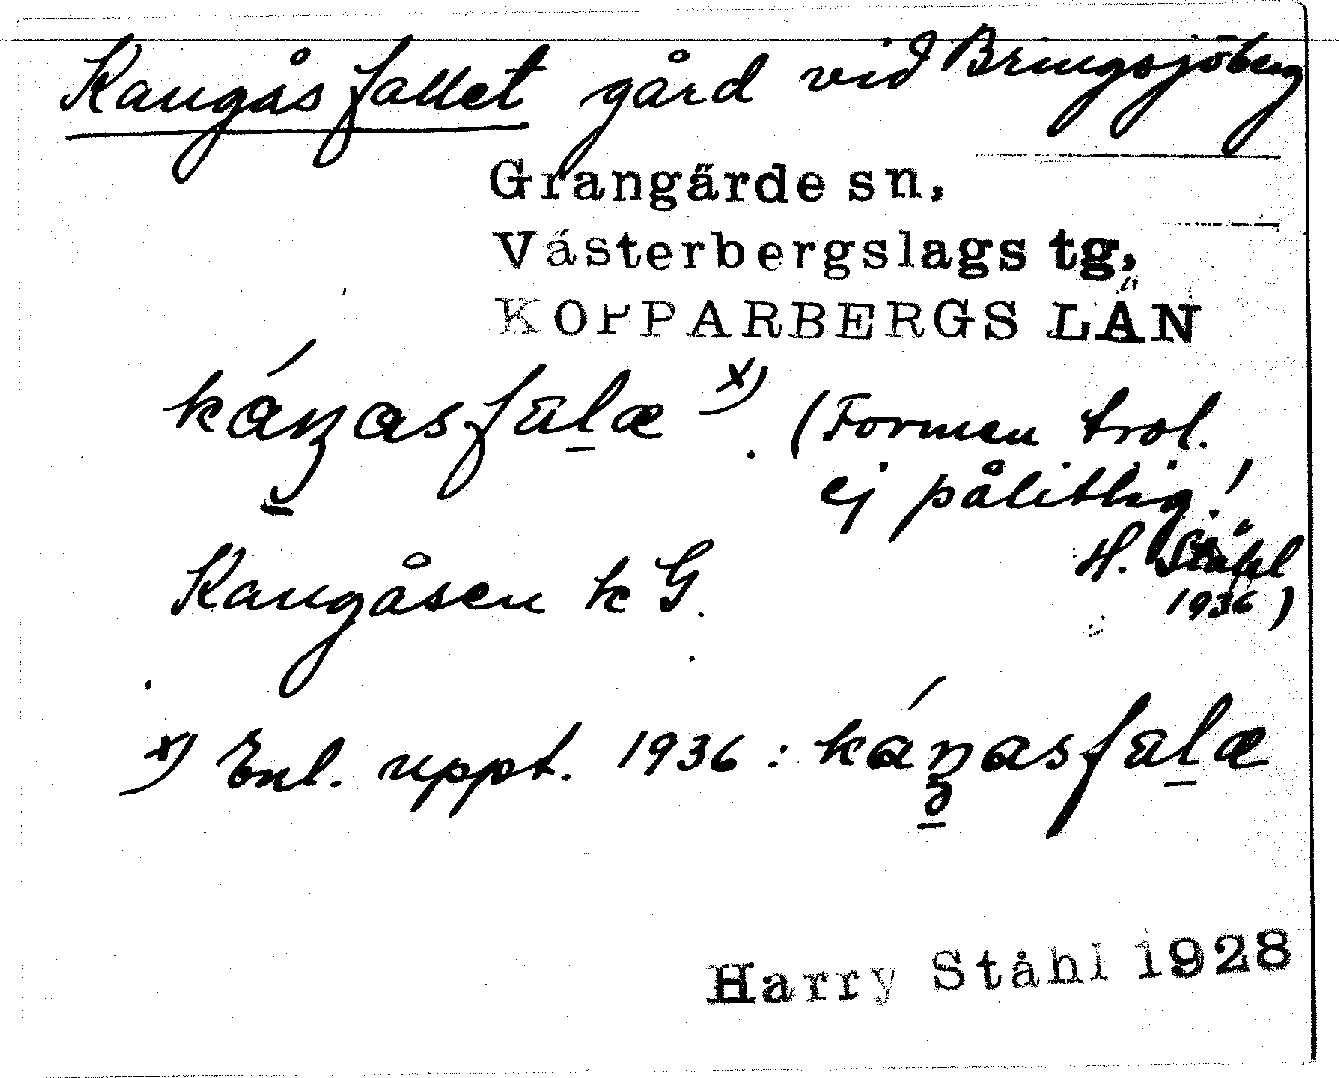 Kangåsfallet gård vid Bringsjöberg
Grangärde sn,
Västerbergslags tg,
KOPPARBERGS LÄN
x) . (Formen trol.
ej pålitlig!
H. Ståhl
1936)
Kangåsen k G.
x) Enl. uppt. 1936 :
Harry Ståhl 1928